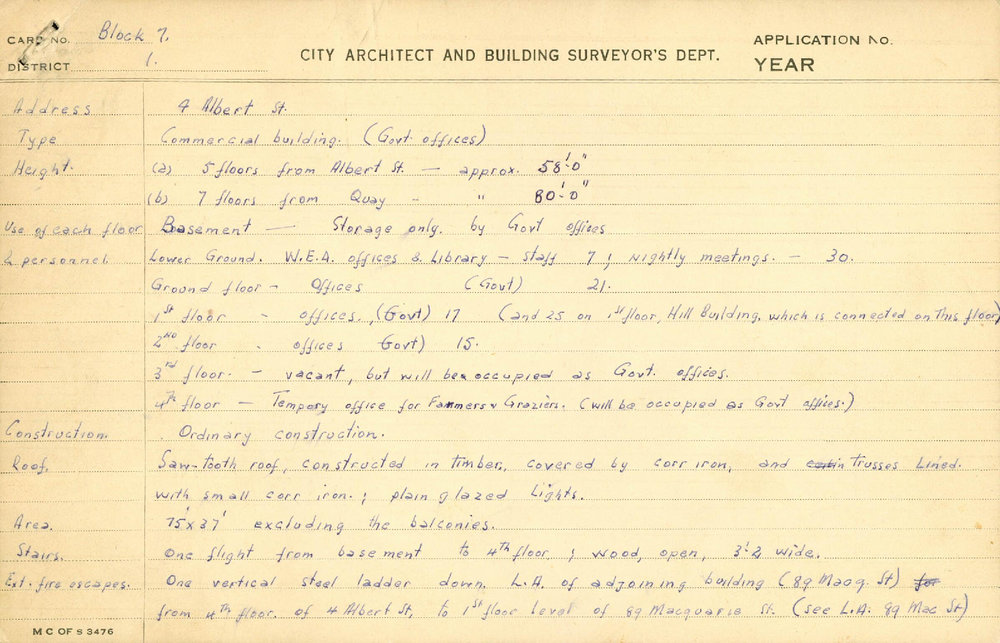 CARD No. Block 7.
DISTRICT 1.
CITY ARCHITECT AND BUILDING SURVEYOR'S DEPT.
APPLICATION No.
YEAR
Address 4 Albert St.
Type Commercial building. (Govt. offices)
Height. (a) 5 floors from Albert St. — approx. 58'-0"
(b) 7 floors from Quay - " 80'-0"
Use of each floor Basement — Storage only. by Govt offices
& personnel. Lower Ground. W.E.A. offices & Library — staff 7; nightly meetings. — 30.
Ground floor - Offices (Govt) 21.
1st floor - offices. (Govt) 17 (and 25 on 1st floor, Hill Building, which is connected on this floor)
2nd floor - offices Govt) 15.
3rd floor. - vacant, but will be occupied as Govt. offices.
4th floor — Tempory office for Farmers & Graziers. (will be occupied as Govt offices.)
Construction. Ordinary construction.
Roof. Saw-tooth roof, constructed in timber, covered by corr iron, and Trusses Lined.
with small corr iron.; plain glazed Lights.
Area. 75'x37' excluding the balconies.
Stairs. One flight from basement to 4th floor; wood, open, 3'-2 wide.
Ext. fire escapes. One vertical steel ladder down. L.A. of adjoining building (89 Macq. St) for
from 4th floor. of 4 Albert St, to 1st floor level of 89 Macquarie St. (see L.A. 89 Mac St)
M C OF S 3476